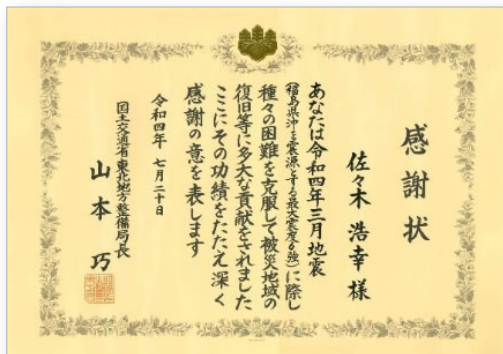 感謝状
佐々木 浩幸 様
あなたは令和四年三月地震
（福島県沖を震源とする最大震度6強）に際し
種々の困難を克服して被災地域の
復旧等に多大な貢献をされました
ここにその功績をたたえ深く
感謝の意を表します
令和四年 七月二十日
国土交通省東北地方整備局長
山本 巧